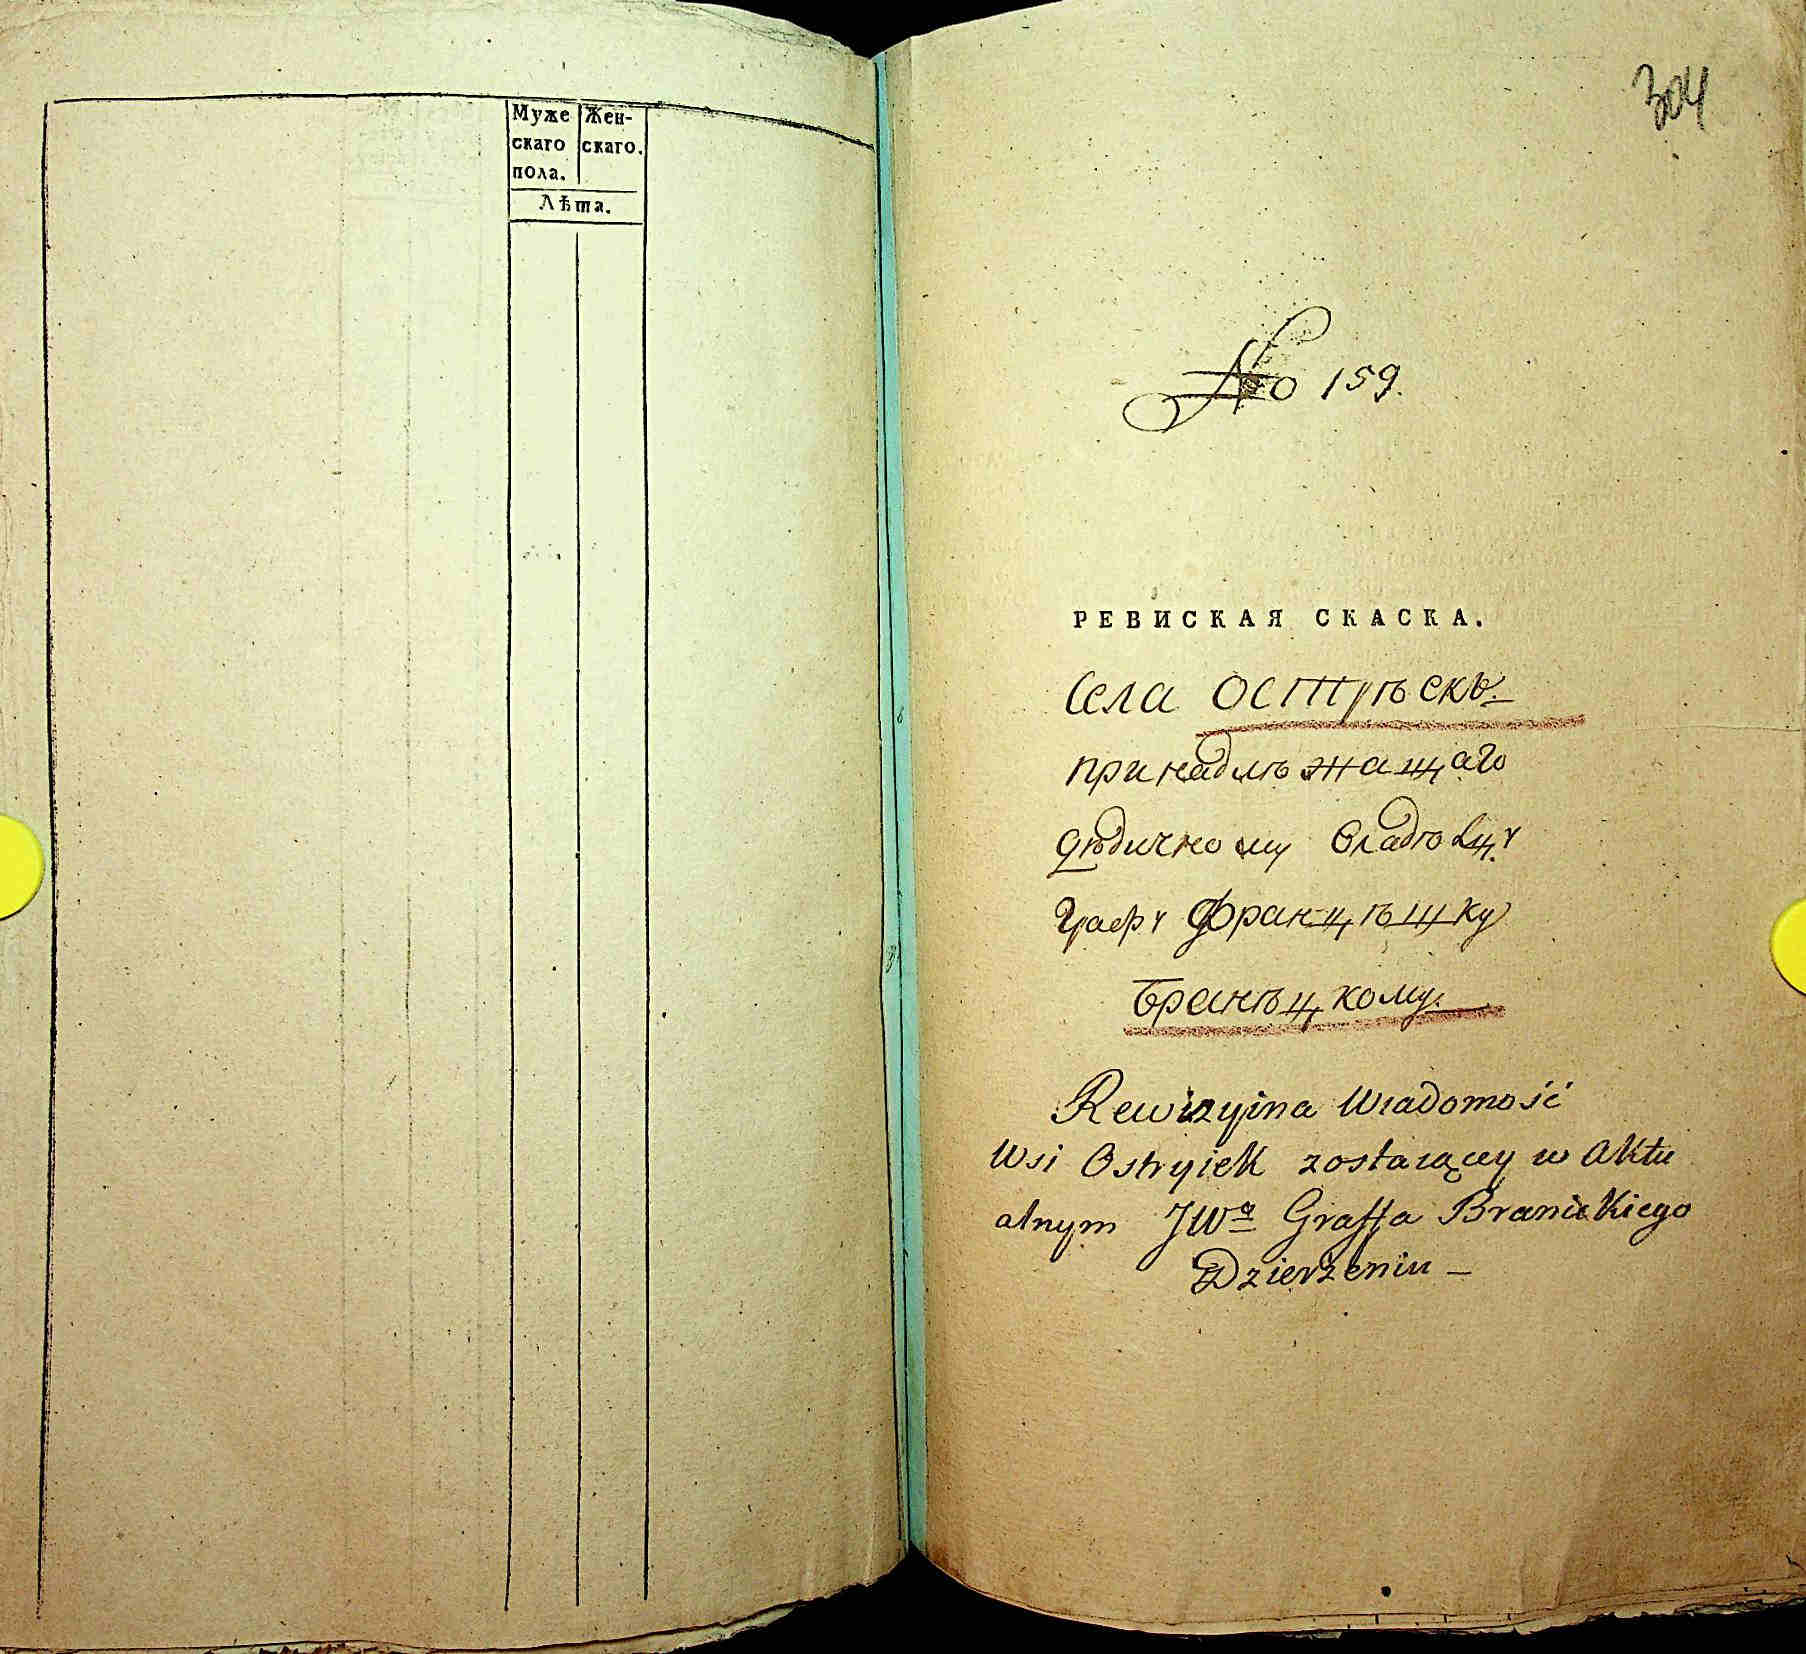 Муже Жен-
скаго скаго.
пола.
Лѣта.
304
No 159.
РЕВИСКАЯ СКАСКА.
Села Острѣекъ
принадлѣжащаго
дѣдичному владѣлцу
Графу Францѣшку
Бранѣцкому.
Rewizyina Wiadomość
Wsi Ostryiek zostaiącey w Aktu
alnym JWº Graffa Branickiego
Dzierżeniu —